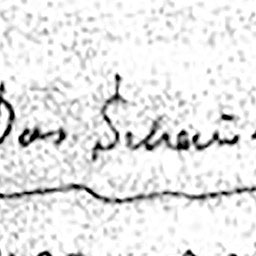 Das Schau-